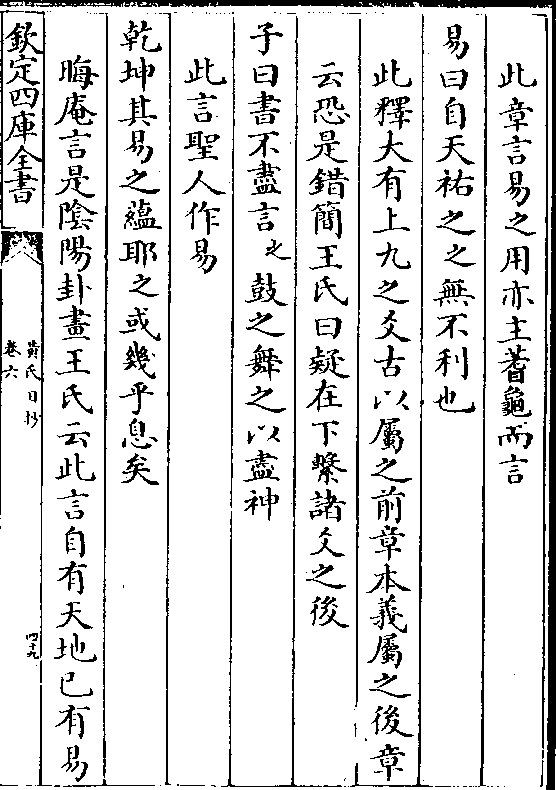 此章言易之用亦主蓍龜而言
易曰自天祐之之無不利也
此釋大有上九之爻古以屬之前章本義屬之後章
云恐是錯簡王氏曰疑在下繫諸爻之後
子曰書不盡言之鼓之舞之以盡神
此言聖人作易
乾坤其易之藴耶之或幾乎息矣
晦庵言是陰陽卦畫王氏云此言自有天地已有易
欽定四庫全書
黄氏日抄
卷六
四十九